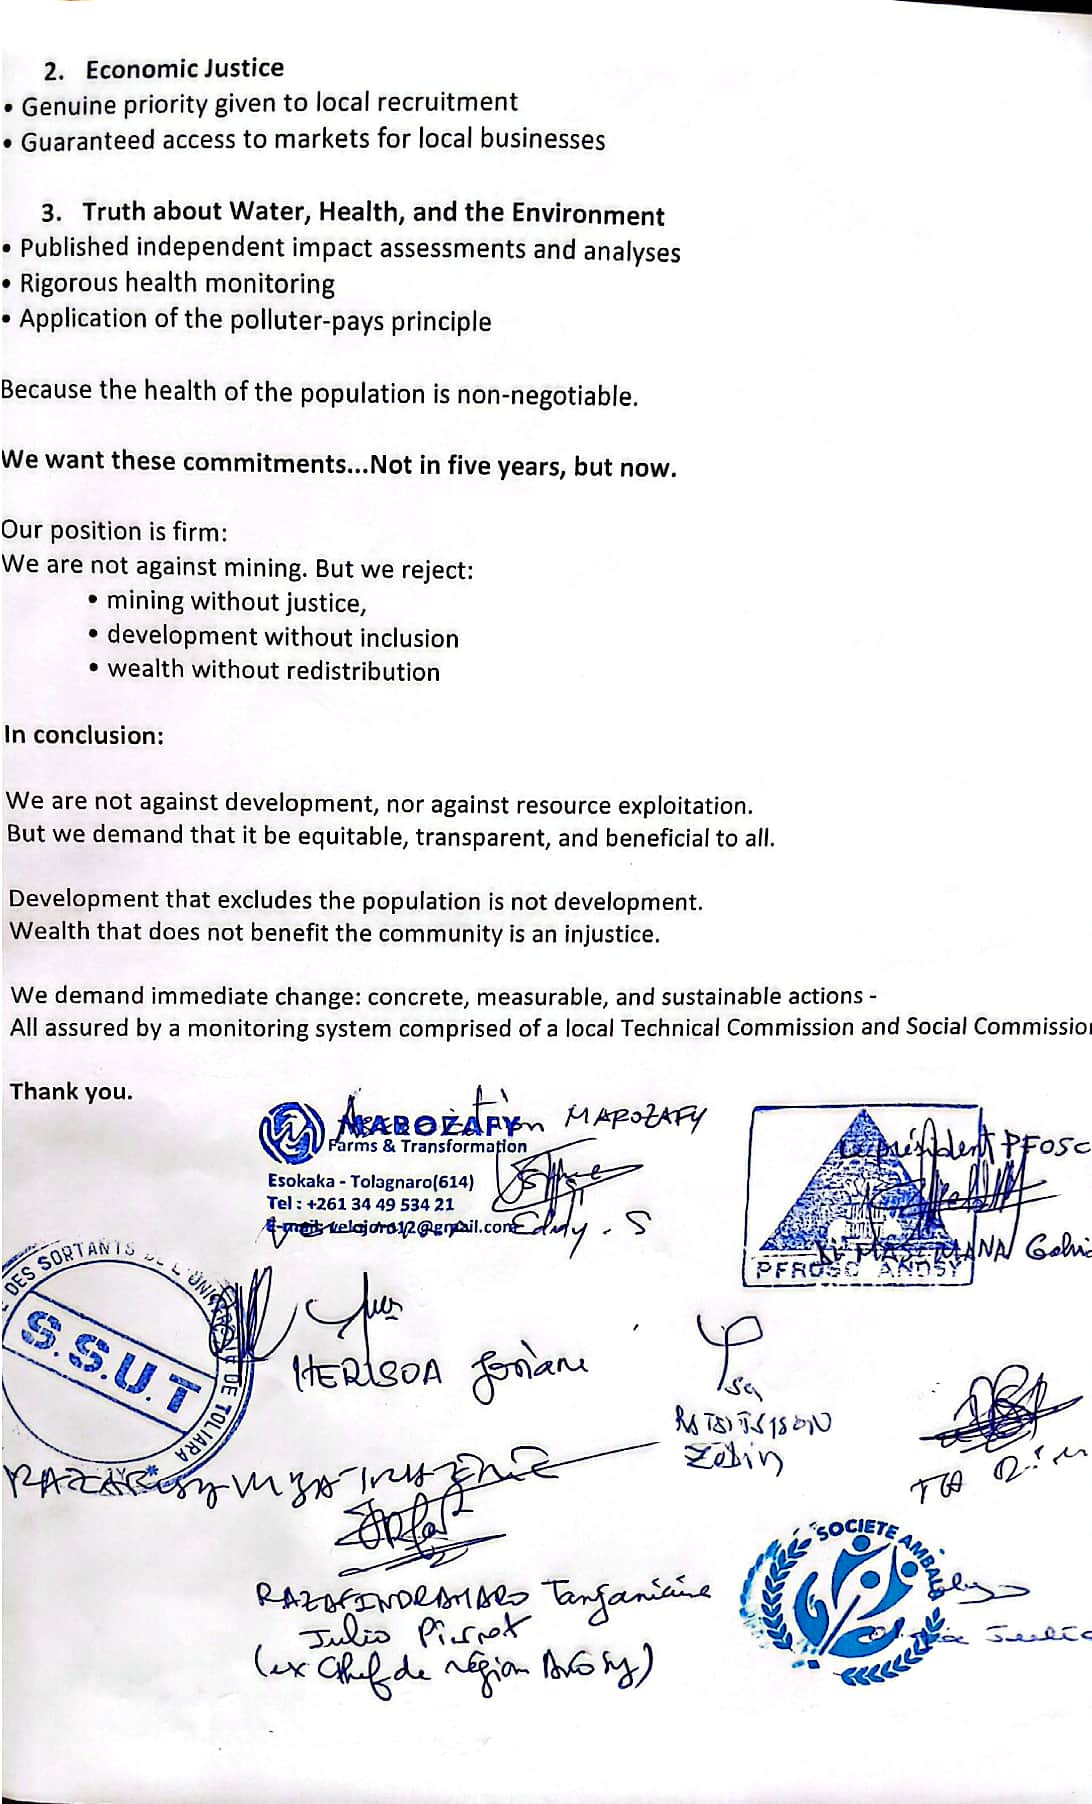 2. Economic Justice
• Genuine priority given to local recruitment
• Guaranteed access to markets for local businesses
3. Truth about Water, Health, and the Environment
• Published independent impact assessments and analyses
• Rigorous health monitoring
• Application of the polluter-pays principle
Because the health of the population is non-negotiable.
We want these commitments...Not in five years, but now.
Our position is firm:
We are not against mining. But we reject:
• mining without justice,
• development without inclusion
• wealth without redistribution
In conclusion:
We are not against development, nor against resource exploitation.
But we demand that it be equitable, transparent, and beneficial to all.
Development that excludes the population is not development.
Wealth that does not benefit the community is an injustice.
We demand immediate change: concrete, measurable, and sustainable actions -
All assured by a monitoring system comprised of a local Technical Commission and Social Commission
Thank you.
Association MAROZAFY
MAROZAFY
Farms & Transformation
Esokaka - Tolagnaro(614)
Tel : +261 34 49 534 21
Eddy . S
Le président PFOSC
PFROSC ANOSY
DES SORTANTS DE L'UNIVERSITE DE TOLIARA
S.S.U.T
HERISOA
Zébin
RAZAFINDRAMARO Tanjaniaina
Julio Pierrot
(ex Chef de région Anosy)
SOCIETE